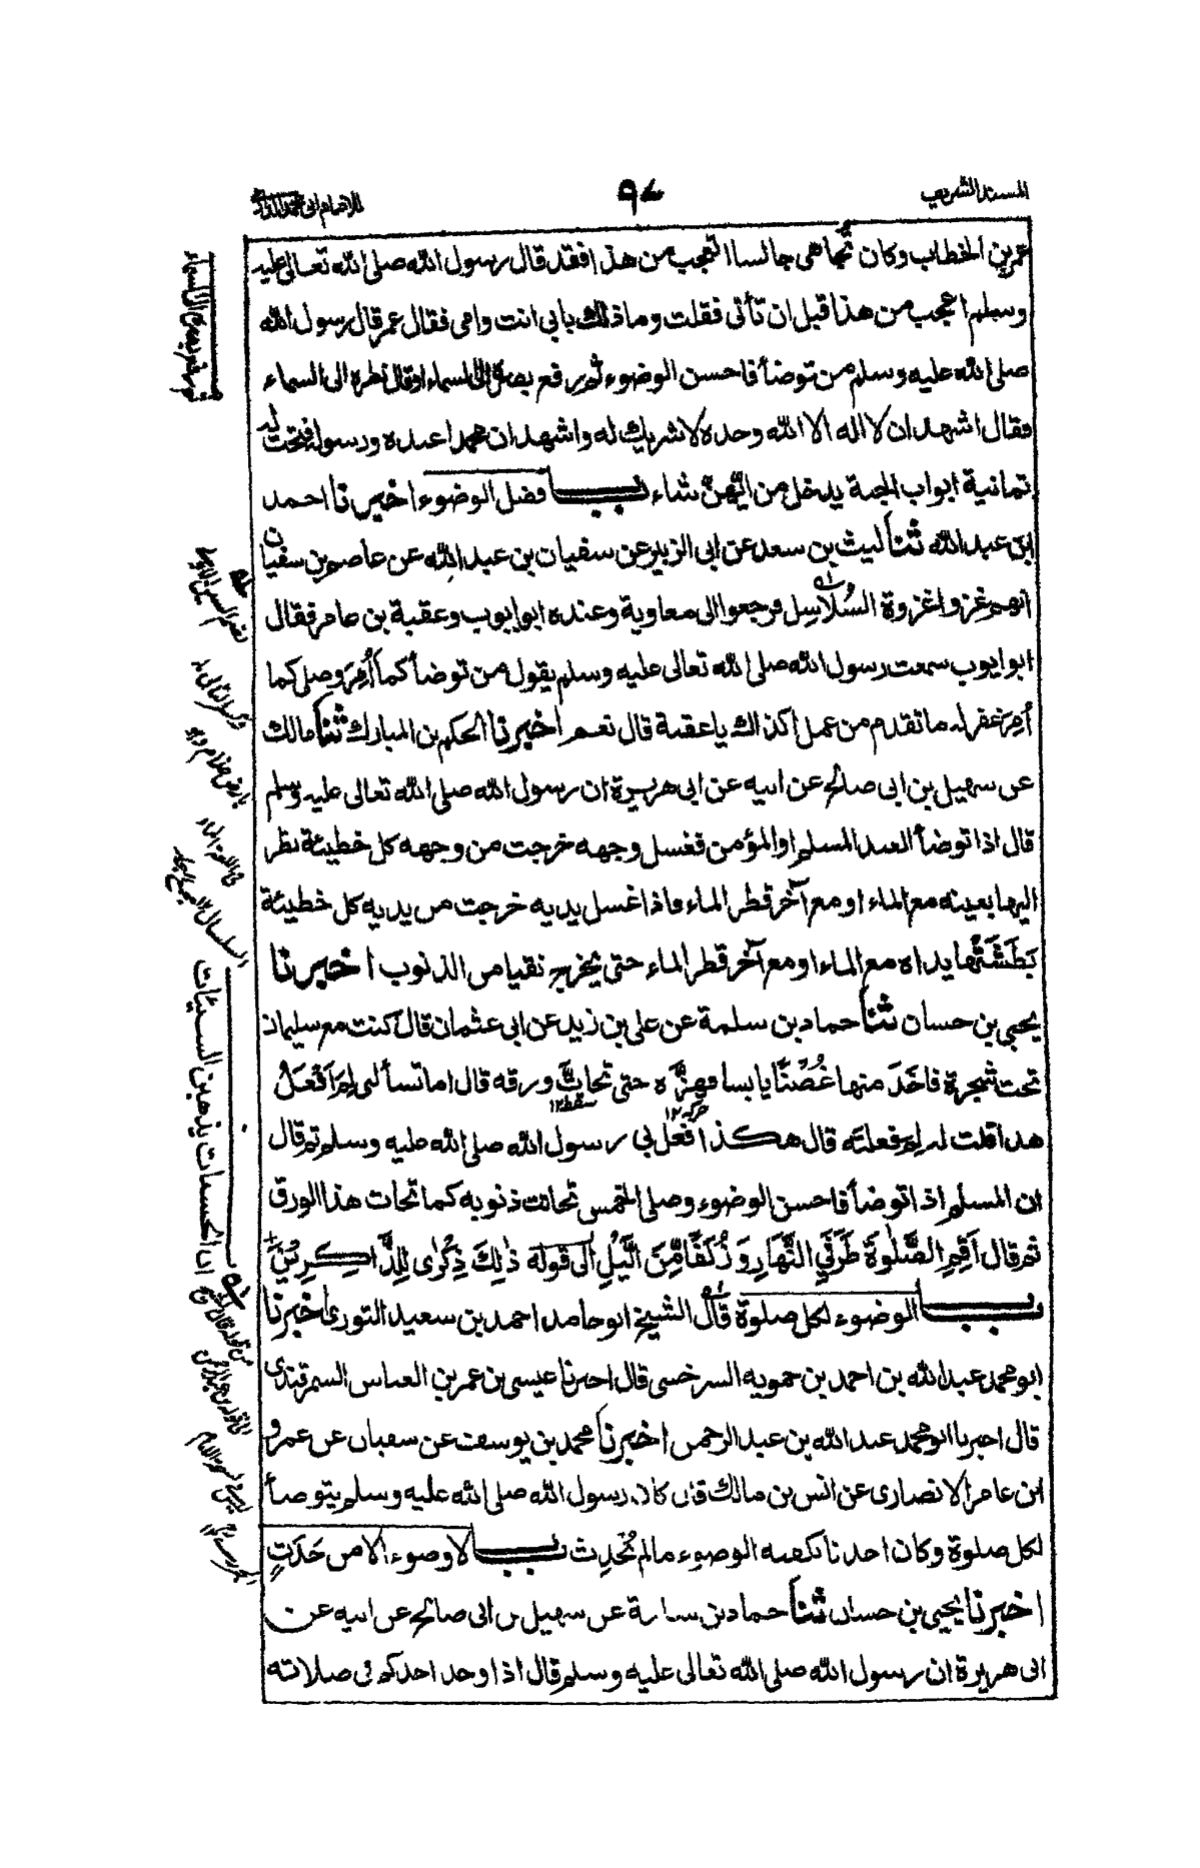 المسند الشريف
٩٧
للامام ابي محمد الدارمي
عمر بن الخطاب وكان تجاهي جالسا اتعجب من هذا فقد قال رسول الله صلى الله تعالى عليه
وسلم اعجب من هذا قبل ان تأتى فقلت وما ذلك بابي انت وامى فقال عمر قال رسول الله
صلى الله عليه وسلم من توضأ فاحسن الوضوء ثم رفع بصره الى السماء او قال نظره الى السماء
فقال اشهد ان لا اله الا الله وحده لا شريك له واشهد ان محمدا عبده ورسوله فتحت له
ثمانية ابواب الجنة يدخل من ايهن شاء باب فضل الوضوء اخبرنا احمد
ابن عبد الله ثنا ليث بن سعد عن ابى الزبير عن سفيان بن عبد الله عن عاصم بن سفيان
انهم غزوا غزوة السُلاسِل فرجعوا الى معاوية وعنده ابو ايوب وعقبة بن عامر فقال
ابو ايوب سمعت رسول الله صلى الله تعالى عليه وسلم يقول من توضأ كما اُمِرَ وصلى كما
اُمِرَ غفر له ما تقدم من عمل اكذاك يا عقبة قال نعم اخبرنا الحكم بن المبارك ثنا مالك
عن سهيل بن ابى صالح عن ابيه عن ابى هريرة ان رسول الله صلى الله تعالى عليه وسلم
قال اذا توضأ العبد المسلم او المؤمن فغسل وجهه خرجت من وجهه كل خطيئة نظر
اليها بعينه مع الماء او مع آخر قطر الماء فاذا غسل يديه خرجت من يديه كل خطيئة
بَطَشَتْها يداه مع الماء او مع آخر قطر الماء حتى يخرج نقيا من الذنوب اخبرنا
يحيى بن حسان ثنا حماد بن سلمة عن على بن زيد عن ابى عثمان قال كنت مع سليمان
تحت شجرة فاخَذَ منها غُصْنًا يابسا فهزَّه حتى تحاتَّ ورقه قال اما تسألنى لِمَ اَفْعَلُ
حركه١٢ سقط١٢
هذا قلت له لِمَ فعلته قال هكذا افعل بي رسول الله صلى الله عليه وسلم ثم قال
ان المسلم اذا توضأ فاحسن الوضوء وصلى الخمس تحاتت ذنوبه كما تحات هذا الورق
ثم قال اَقِمِ الصَّلٰوةَ طَرَفَيِ النَّهَارِ وَ زُلَفًا مِّنَ الَّيْلِ الى قوله ذٰلِكَ ذِكْرٰى لِلذَّاكِرِيْنَ
باب الوضوء لكل صلوة قال الشيخ ابو حامد احمد بن سعيد الثورى اخبرنا
ابو محمد عبد الله بن احمد بن حمويه السرخسى قال اخبرنا عيسى بن عمر بن العباس السمرقندى
قال اخبرنا ابو محمد عبد الله بن عبد الرحمن اخبرنا محمد بن يوسف عن سفيان عن عمرو
ابن عامر الانصارى عن انس بن مالك قال كان رسول الله صلى الله عليه وسلم يتوضأ
لكل صلوة وكان احدنا يكفيه الوضوء ما لم يُحْدِث باب لا وضوء الا من حَدَثٍ
اخبرنا يحيى بن حسان ثنا حماد بن سلمة عن سهيل بن ابى صالح عن ابيه عن
ابى هريرة ان رسول الله صلى الله تعالى عليه وسلم قال اذا وجد احدكم فى صلاته
ان الحسنات يذهبن السيئات